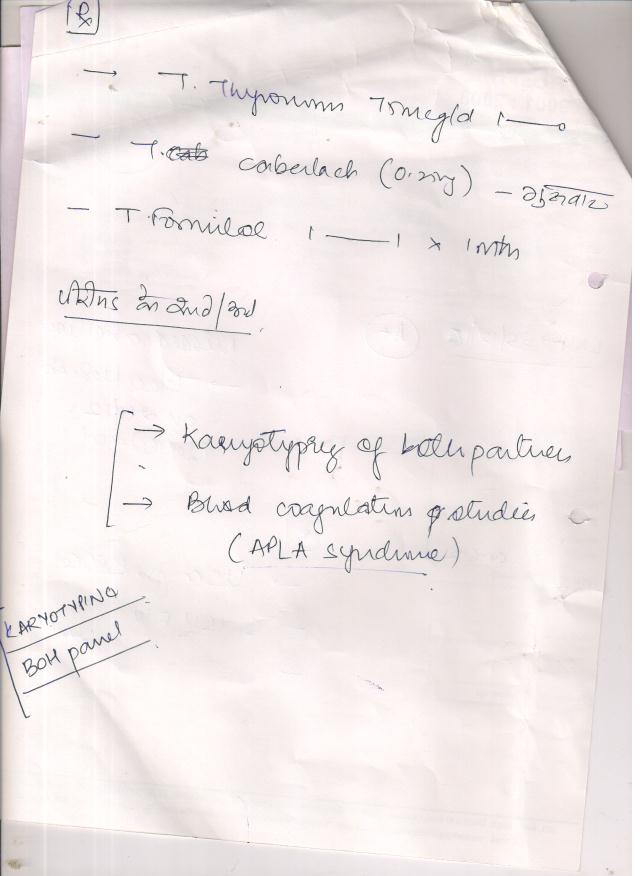 Rx
→ T. Thyronorm 75mcg/d 1——o
— T. caberlack (0.25mg) – शुक्रवार
— T. Fornilac 1——1 x 1 mth
→ Karyotyping of both partners
→ Blood coagulation studies
(APLA syndrome)
KARYOTYPING
BOH panel